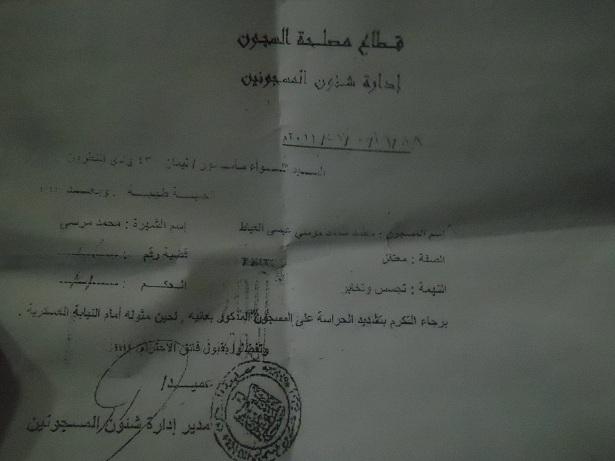 قطاع مصلحة السجون
إدارة شئون المسجونين
السيد اللواء مأمور / ليمان ٤٣٠ وادى النطرون
تحية طيبة .. وبعد
اسم المسجون : محمد محمد مرسي عيسى العياط
إسم الشهرة : محمد مرسي
الصفة : معتقل
قضية رقم :
التهمة : تجسس وتخابر
الحكم :
برجاء التكرم بتشديد الحراسة على المسجون المذكور بعاليه , لحين مثوله أمام النيابة العسكرية .
وتفضلوا بقبول فائق الاحترام
عميد/
مدير إدارة شئون المسجونين